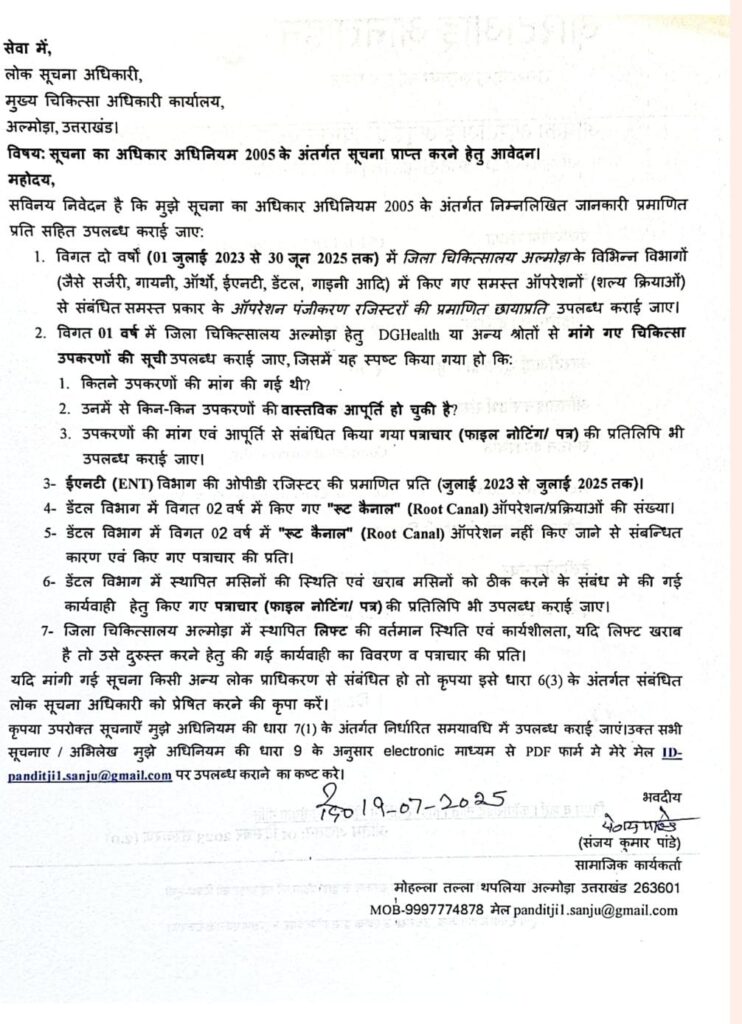 सेवा में,
लोक सूचना अधिकारी,
मुख्य चिकित्सा अधिकारी कार्यालय,
अल्मोड़ा, उत्तराखंड।
विषय: सूचना का अधिकार अधिनियम 2005 के अंतर्गत सूचना प्राप्त करने हेतु आवेदन।
महोदय,
सविनय निवेदन है कि मुझे सूचना का अधिकार अधिनियम 2005 के अंतर्गत निम्नलिखित जानकारी प्रमाणित
प्रति सहित उपलब्ध कराई जाए:
1. विगत दो वर्षों (01 जुलाई 2023 से 30 जून 2025 तक) में जिला चिकित्सालय अल्मोड़ा के विभिन्न विभागों
(जैसे सर्जरी, गायनी, ऑर्थो, ईएनटी, डेंटल, गाइनी आदि) में किए गए समस्त ऑपरेशनों (शल्य क्रियाओं)
से संबंधित समस्त प्रकार के ऑपरेशन पंजीकरण रजिस्टरों की प्रमाणित छायाप्रति उपलब्ध कराई जाए।
2. विगत 01 वर्ष में जिला चिकित्सालय अल्मोड़ा हेतु DGHealth या अन्य श्रोतों से मांगे गए चिकित्सा
उपकरणों की सूची उपलब्ध कराई जाए, जिसमें यह स्पष्ट किया गया हो कि:
1. कितने उपकरणों की मांग की गई थी?
2. उनमें से किन-किन उपकरणों की वास्तविक आपूर्ति हो चुकी है?
3. उपकरणों की मांग एवं आपूर्ति से संबंधित किया गया पत्राचार (फाइल नोटिंग/ पत्र) की प्रतिलिपि भी
उपलब्ध कराई जाए।
3- ईएनटी (ENT) विभाग की ओपीडी रजिस्टर की प्रमाणित प्रति (जुलाई 2023 से जुलाई 2025 तक)।
4- डेंटल विभाग में विगत 02 वर्ष में किए गए "रूट कैनाल" (Root Canal) ऑपरेशन/प्रक्रियाओं की संख्या।
5- डेंटल विभाग में विगत 02 वर्ष में "रूट कैनाल" (Root Canal) ऑपरेशन नहीं किए जाने से संबन्धित
कारण एवं किए गए पत्राचार की प्रति।
6- डेंटल विभाग में स्थापित मसिनों की स्थिति एवं खराब मसिनों को ठीक करने के संबंध मे की गई
कार्यवाही हेतु किए गए पत्राचार (फाइल नोटिंग/ पत्र) की प्रतिलिपि भी उपलब्ध कराई जाए।
7- जिला चिकित्सालय अल्मोड़ा में स्थापित लिफ्ट की वर्तमान स्थिति एवं कार्यशीलता, यदि लिफ्ट खराब
है तो उसे दुरुस्त करने हेतु की गई कार्यवाही का विवरण व पत्राचार की प्रति।
यदि मांगी गई सूचना किसी अन्य लोक प्राधिकरण से संबंधित हो तो कृपया इसे धारा 6(3) के अंतर्गत संबंधित
लोक सूचना अधिकारी को प्रेषित करने की कृपा करें।
कृपया उपरोक्त सूचनाएँ मुझे अधिनियम की धारा 7(1) के अंतर्गत निर्धारित समयावधि में उपलब्ध कराई जाएं।उक्त सभी
सूचनाए / अभिलेख मुझे अधिनियम की धारा 9 के अनुसार electronic माध्यम से PDF फार्म मे मेरे मेल ID-
panditji1.sanju@gmail.com पर उपलब्ध कराने का कष्ट करे।
19-07-2025
भवदीय
(संजय कुमार पांडे)
सामाजिक कार्यकर्ता
मोहल्ला तल्ला थपलिया अल्मोड़ा उत्तराखंड 263601
MOB-9997774878 मेल panditji1.sanju@gmail.com